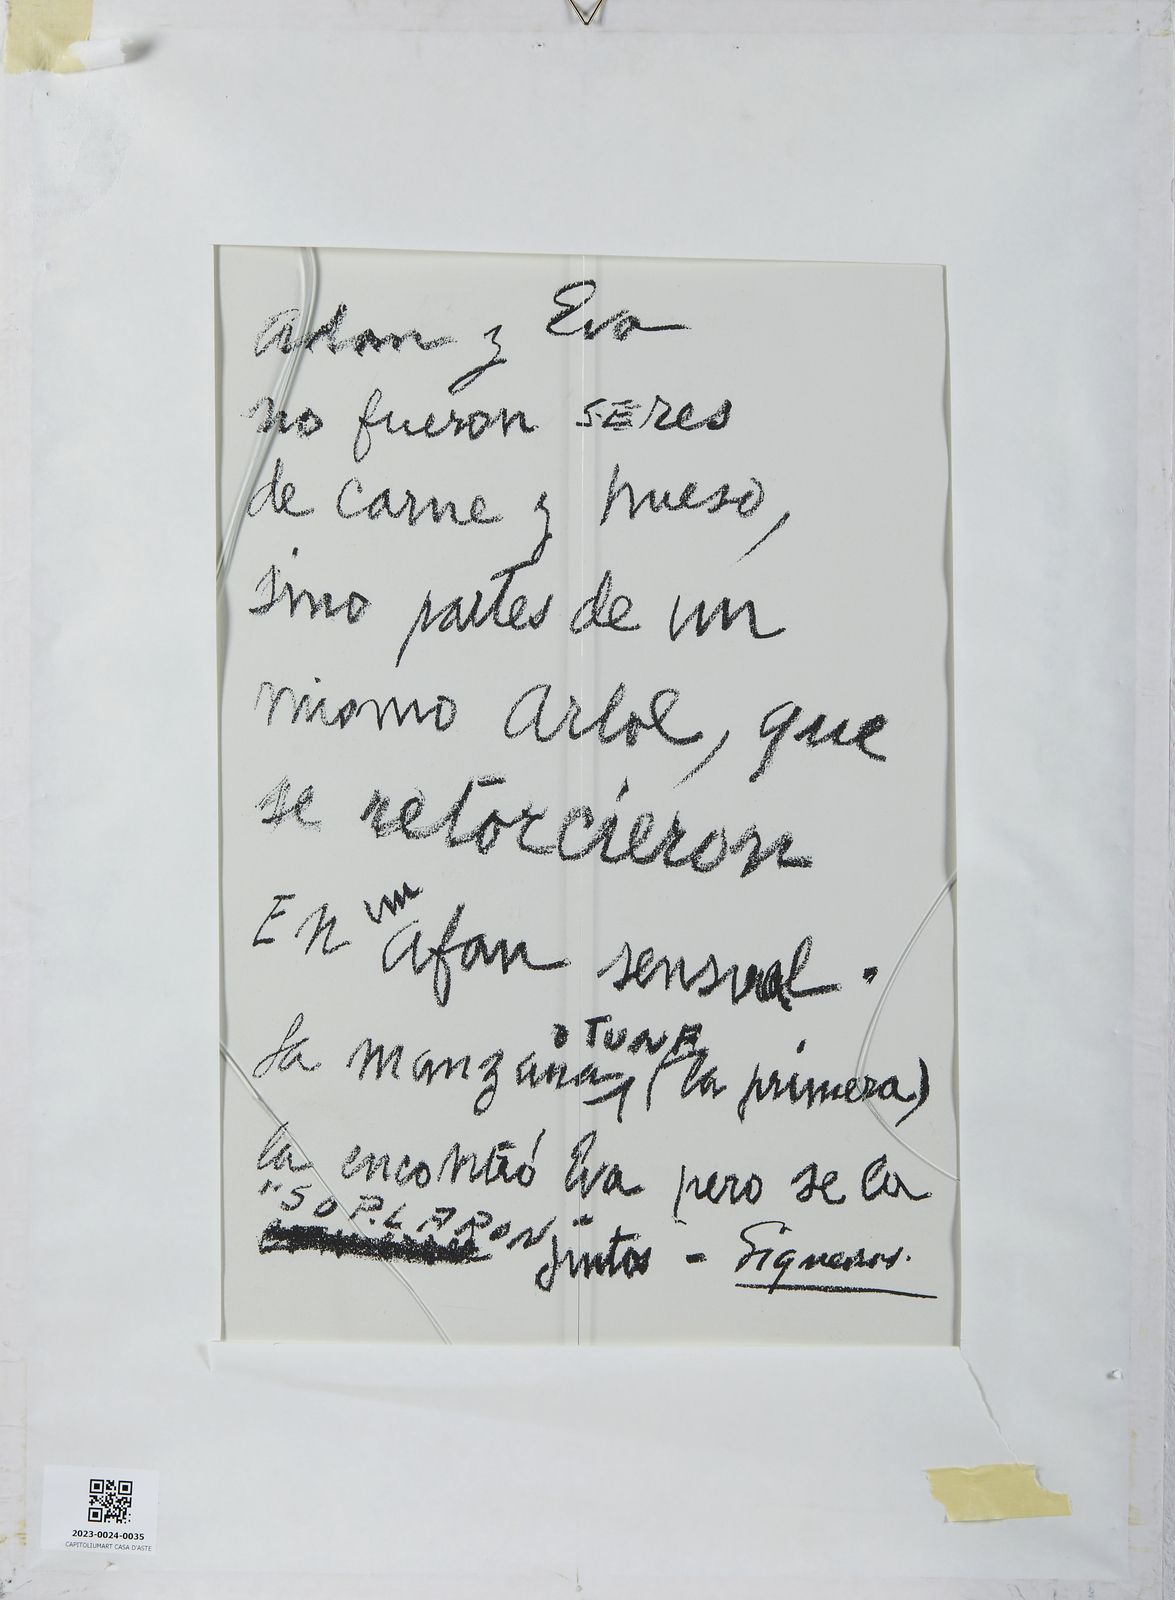 Adan y Eva
no fueron SEres
de carne y hueso,
sino partes de un
mismo arbol, que
se retorcieron
En un afan sensual.
o TUNA
La manzana, (la primera)
la encontró Eva pero se la
"SOPLARON"
juntos - Siqueiros.
2023-0024-0035
CAPITOLIUMART CASA D'ASTE